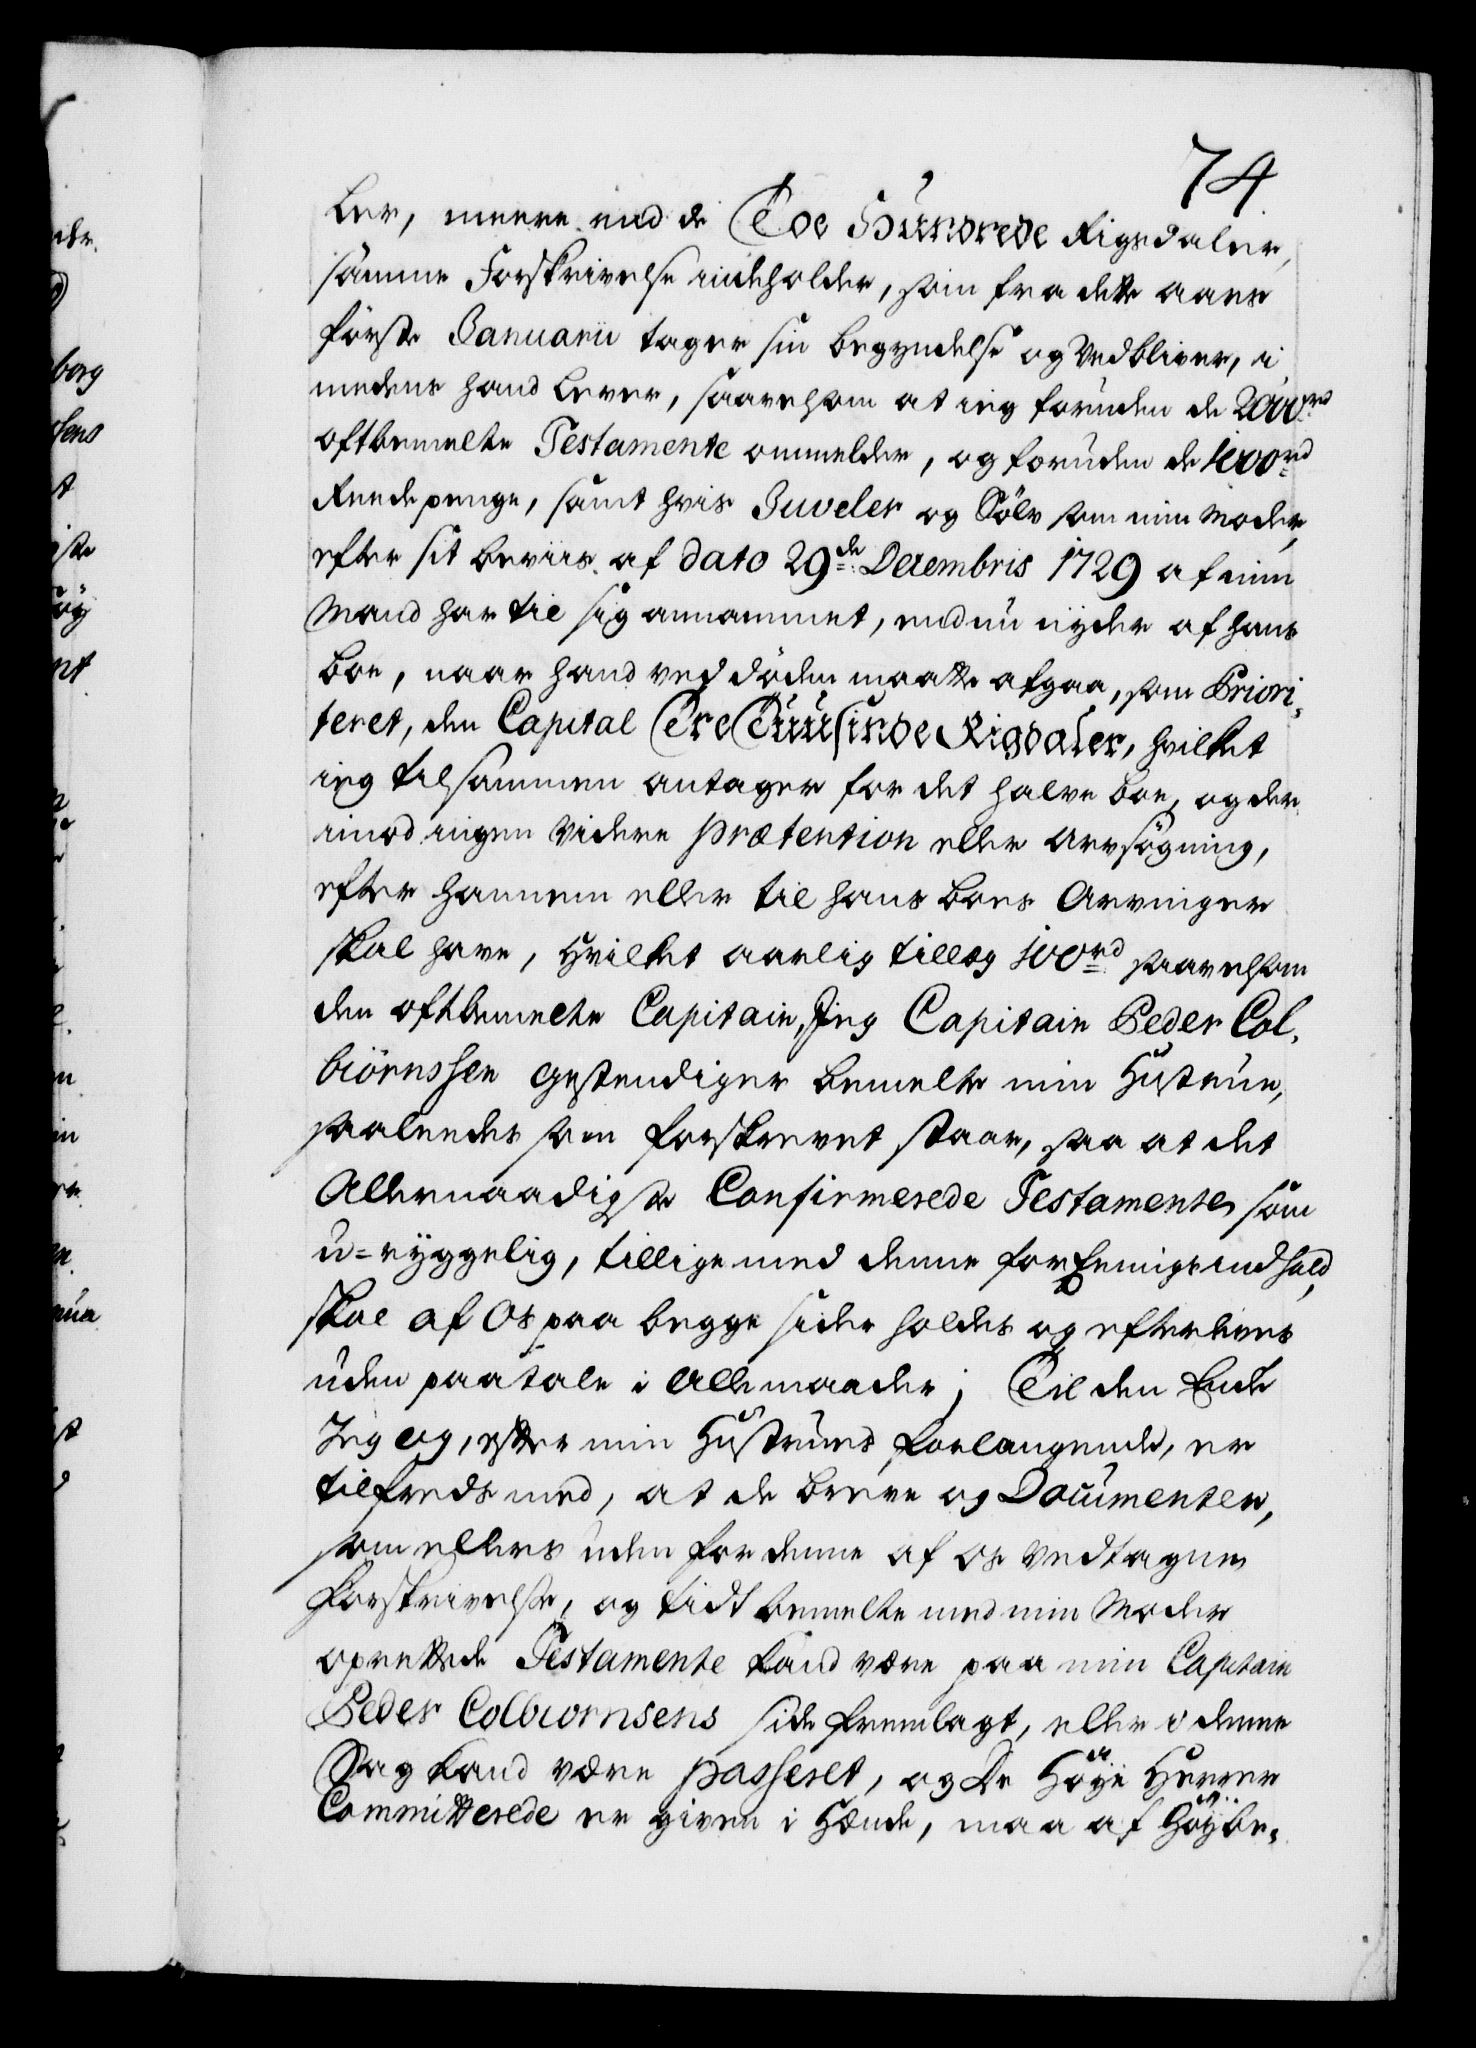 74
ler, meere end de Toe Hundrede Rigsdaler,
samme Forskrivelse indeholder, som fra dette aars
første Januarii tager sin begyndelse og Vedbliver, i
medens hand lever, saavelsom at ieg foruden de 2000rd
oftbemelte Testamente ommelder, og foruden de 1000rd
Reede penge, samt hvis Juveler og Sølv som min Moder,
efter sit beviis af dato 29de Decembris 1729 af min
Mand har til sig annammet, endnu nyder af hans
boe, naar hand ved døden maatte afgaa, som Priori,
teret, den Capital Tre Tuusinde Rigdaler, hvilket
ieg tilsammen antager for det halve boe, og der
imod ingen Videre prætention eller Arvsøgning,
efter hannem eller til hans boes Arvinger
skal have, Hvilket aarlig tillæg 100rd saavelsom
den oftbemelte Capitain, Jeg Capitain Peder Col,
biörnssen gestendiger bemelte min Hustrue,
saaledes som forskrevet staar, saa at det
Allernaadigste Confirmerede Testamente, som
u=ryggelig, tillige med denne forEenings indhold,
skal af Os paa begge sider holdes og efterleves
uden paatale i Alle maader; Til den Ende
Jeg og, efter min Hustrues forlangende, er
tilfreds med, at de breve og Documenter,
som ellers uden for denne af os Vedtagne
forskrivelse, og tidt bemelte med min Moder
oprettede Testamente kand være paa min Capitain
Peder Colbiornsens side fremlagt, eller i denne
Sag kand være passeret, og De Høye Herrer
Committerede er given i Hænde, maa af Høybe,